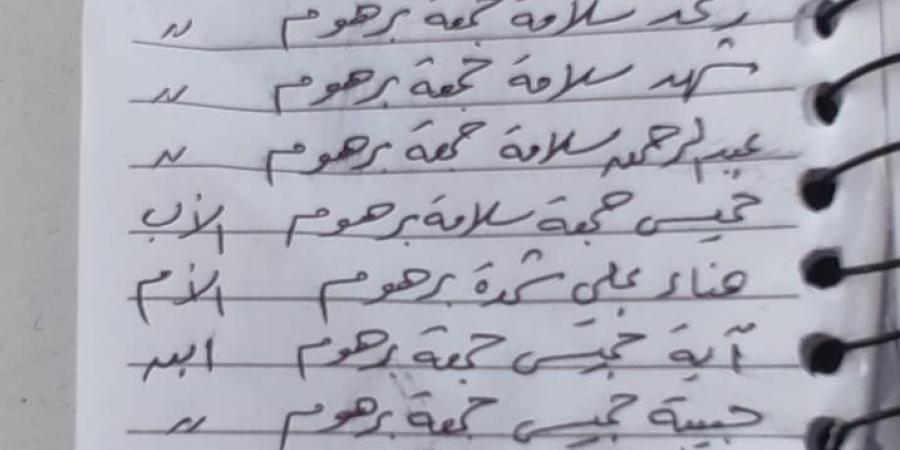 رغد سلامة جمعة برهوم "
شهد سلامة جمعة برهوم "
عبدالرحمن سلامة جمعة برهوم "
خميس جمعة سلامة برهوم الأب
هناء علي شدة برهوم الأم
آية خميس جمعة برهوم ابنه
حبيبة خميس جمعة برهوم "